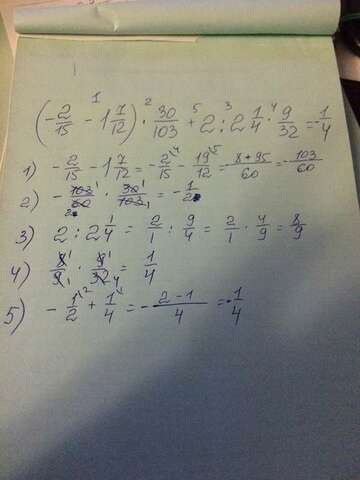 (-2/15 - 1 7/12) · 30/103 + 2 : 2 1/4 · 9/32 = -1/4
1) -2/15 - 1 7/12 = -2/15 - 19/12 = -8+95/60 = -103/60
2) -103/60 · 30/103 = -1/2
3) 2 : 2 1/4 = 2/1 : 9/4 = 2/1 · 4/9 = 8/9
4) 8/9 · 9/32 = 1/4
5) -1/2 + 1/4 = -2-1/4 = -1/4